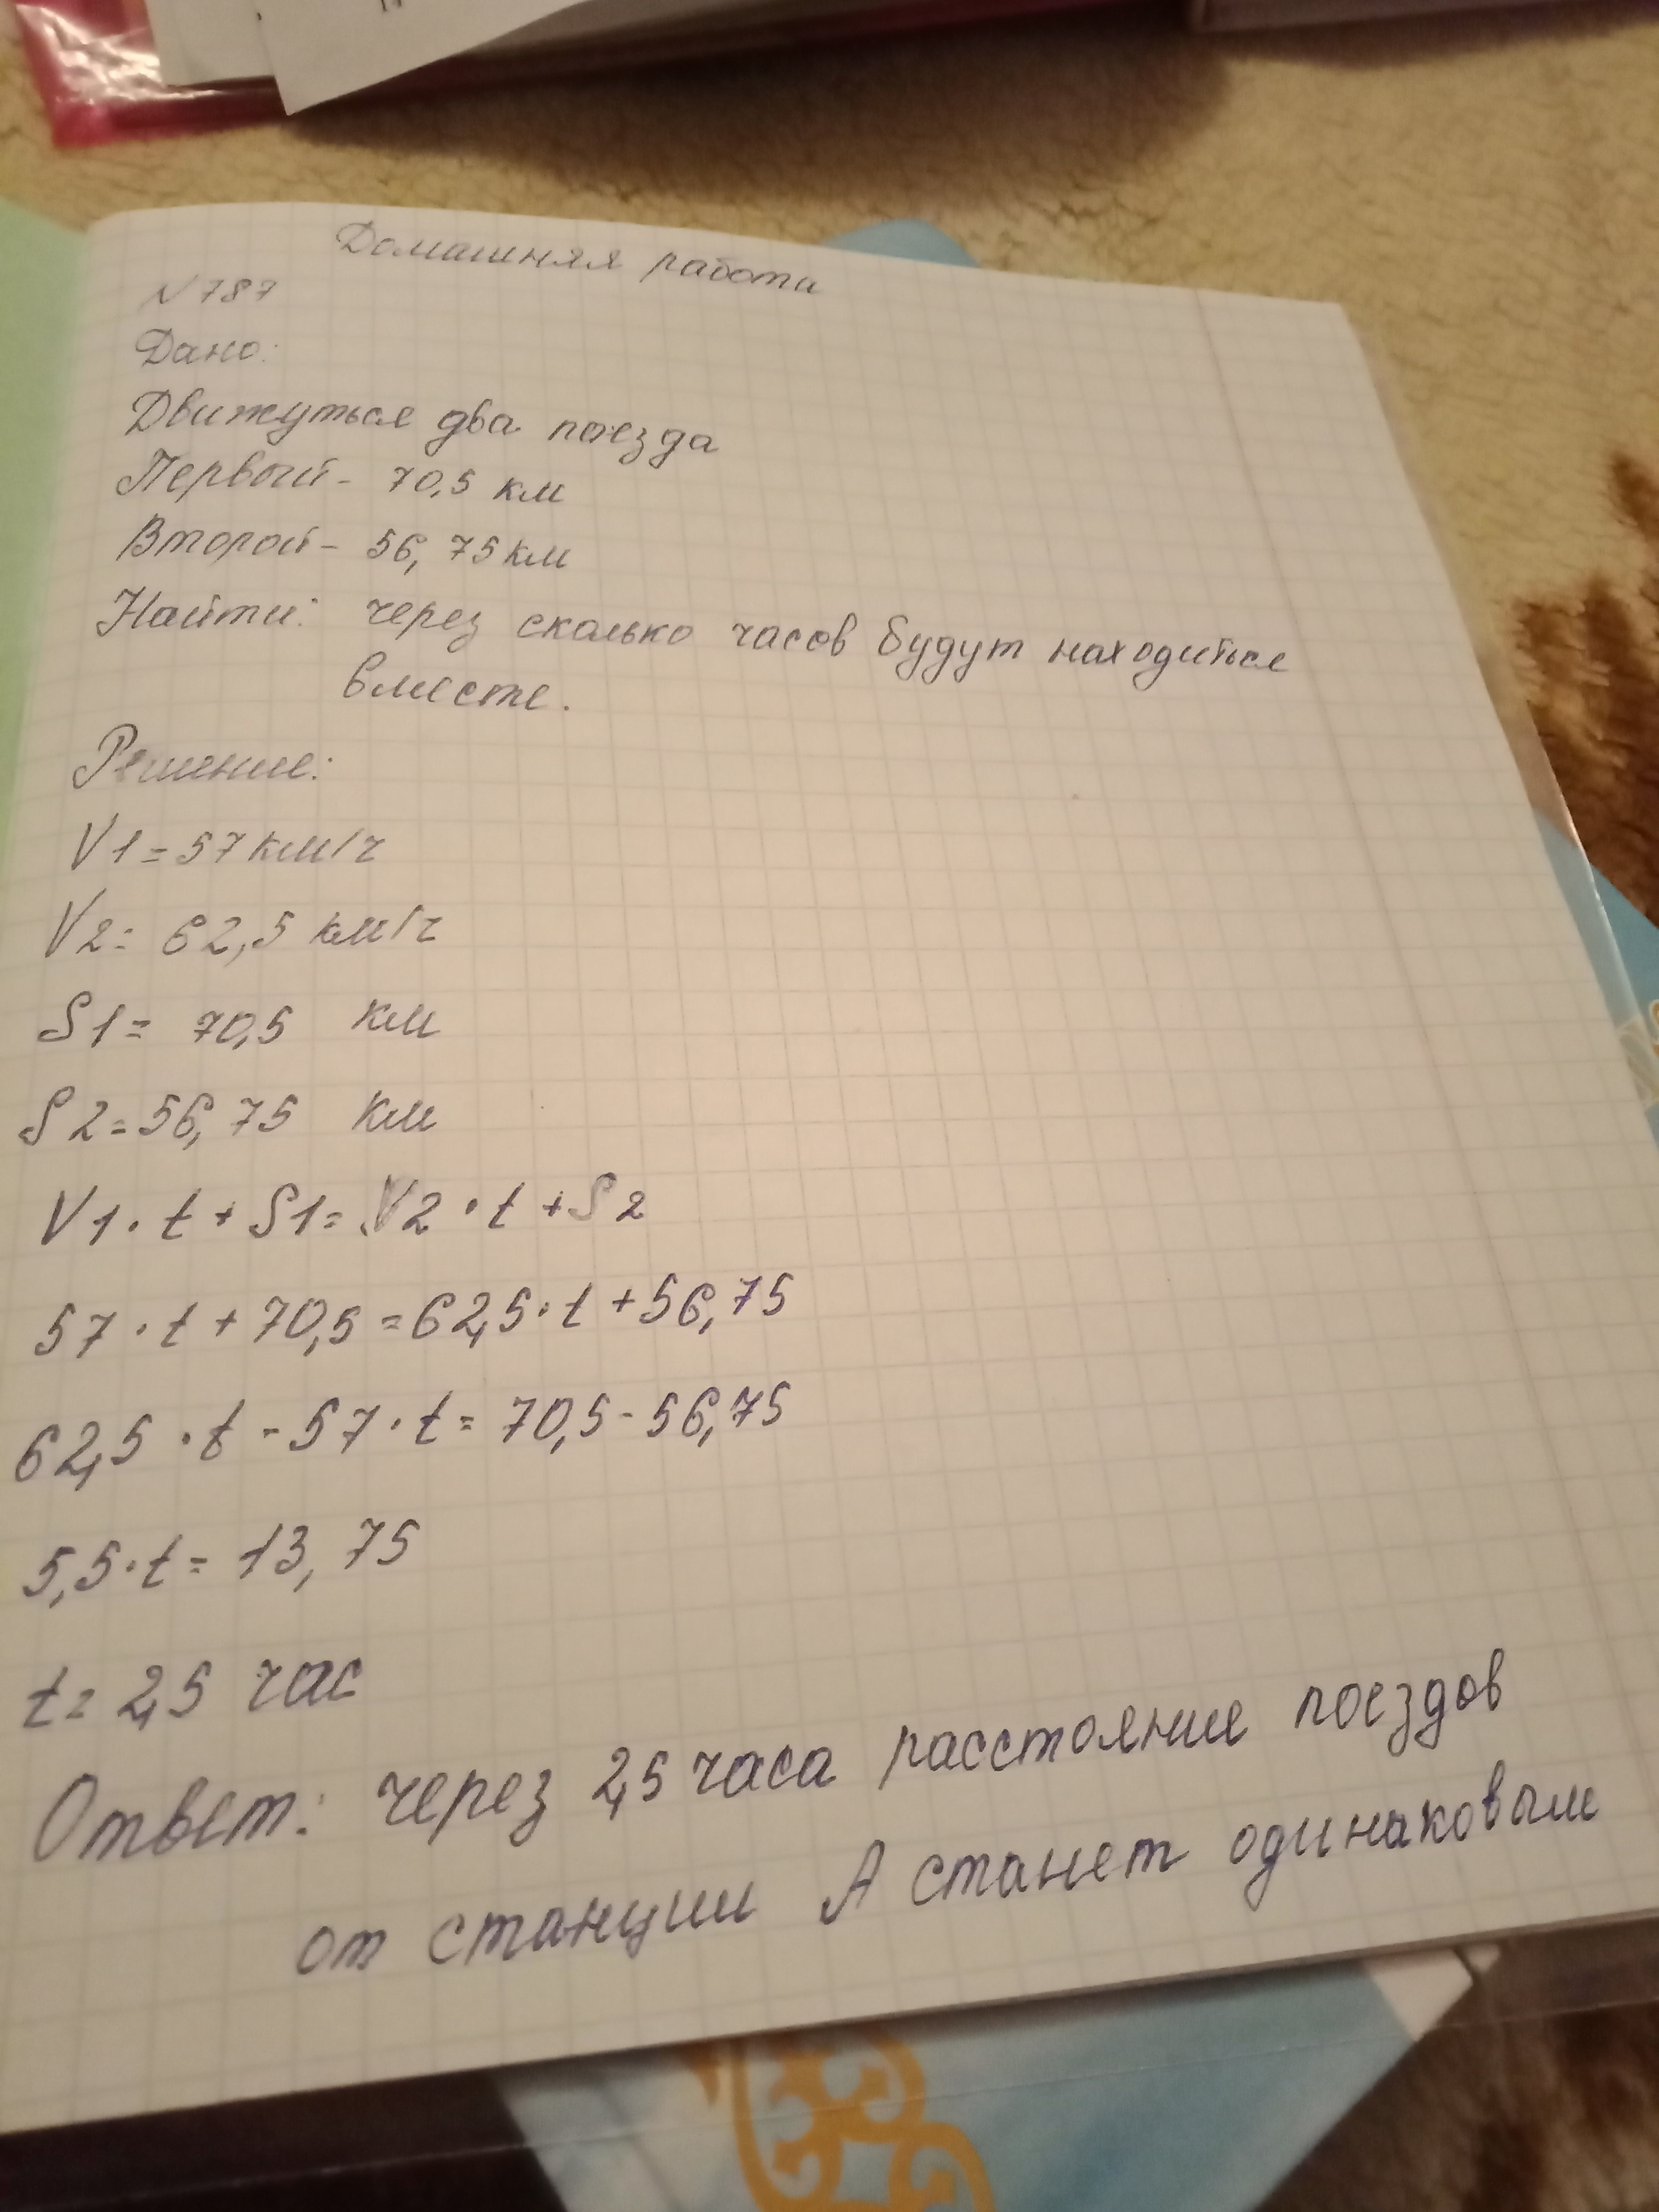 Домашняя работа
N 787
Дано:
Движуться два поезда
Первый - 70,5 км
Второй - 56,75 км
Найти: через сколько часов будут находиться
вместе.
Решение:
V1 = 57 км/ч
V2 = 62,5 км/ч
S1 = 70,5 км
S2 = 56,75 км
V1 · t + S1 = V2 · t + S2
57 · t + 70,5 = 62,5 · t + 56,75
62,5 · t - 57 · t = 70,5 - 56,75
5,5 · t = 13,75
t = 2,5 час
Ответ: через 2,5 часа расстояние поездов
от станции А станет одинаковым